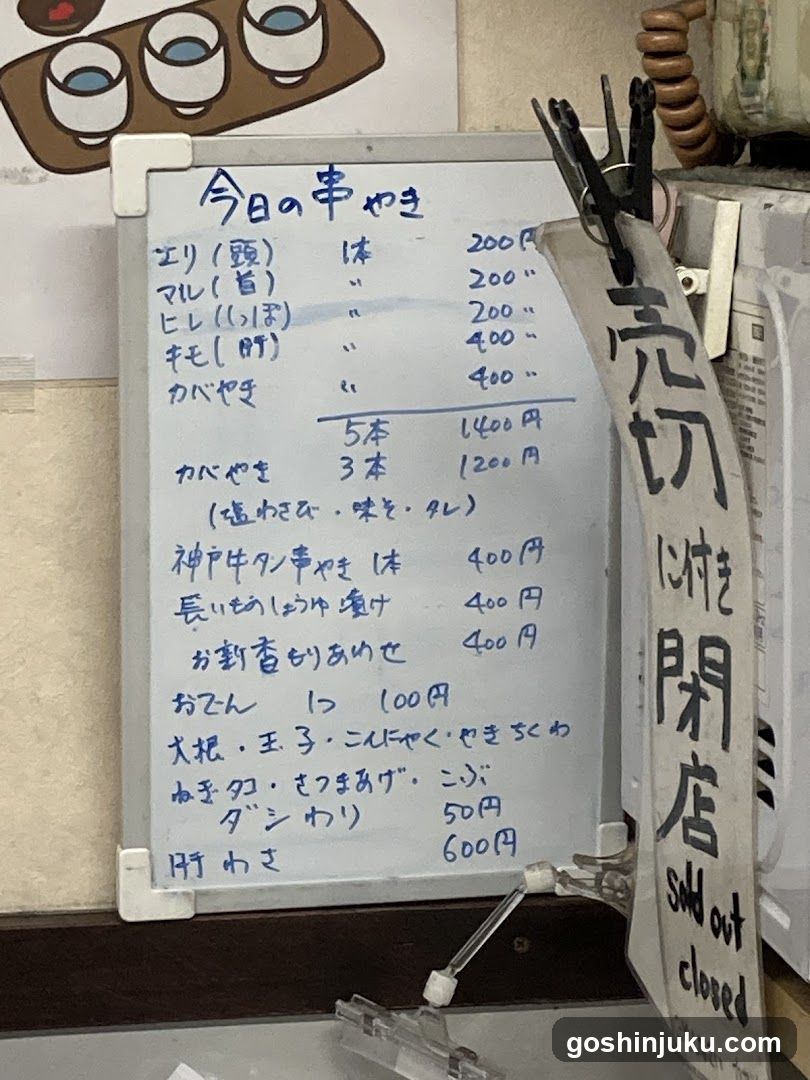 今日の串やき
エリ(頭) 1本 200円
マル(首) 〃 200〃
ヒレ(しっぽ) 〃 200〃
キモ(肝) 〃 400〃
カバやき 〃 400〃
5本 1400円
カバやき 3本 1200円
(塩わさび・味そ・タレ)
神戸牛タン串やき 1本 400円
長いものしょうゆ漬け 400円
お新香もりあわせ 400円
おでん 1つ 100円
大根・玉子・こんにゃく・やきちくわ
ねぎタコ・さつまあげ・こぶ
ダシわり 50円
肝わさ 600円
売切
に付き
閉店
sold out
closed
goshinjuku.com